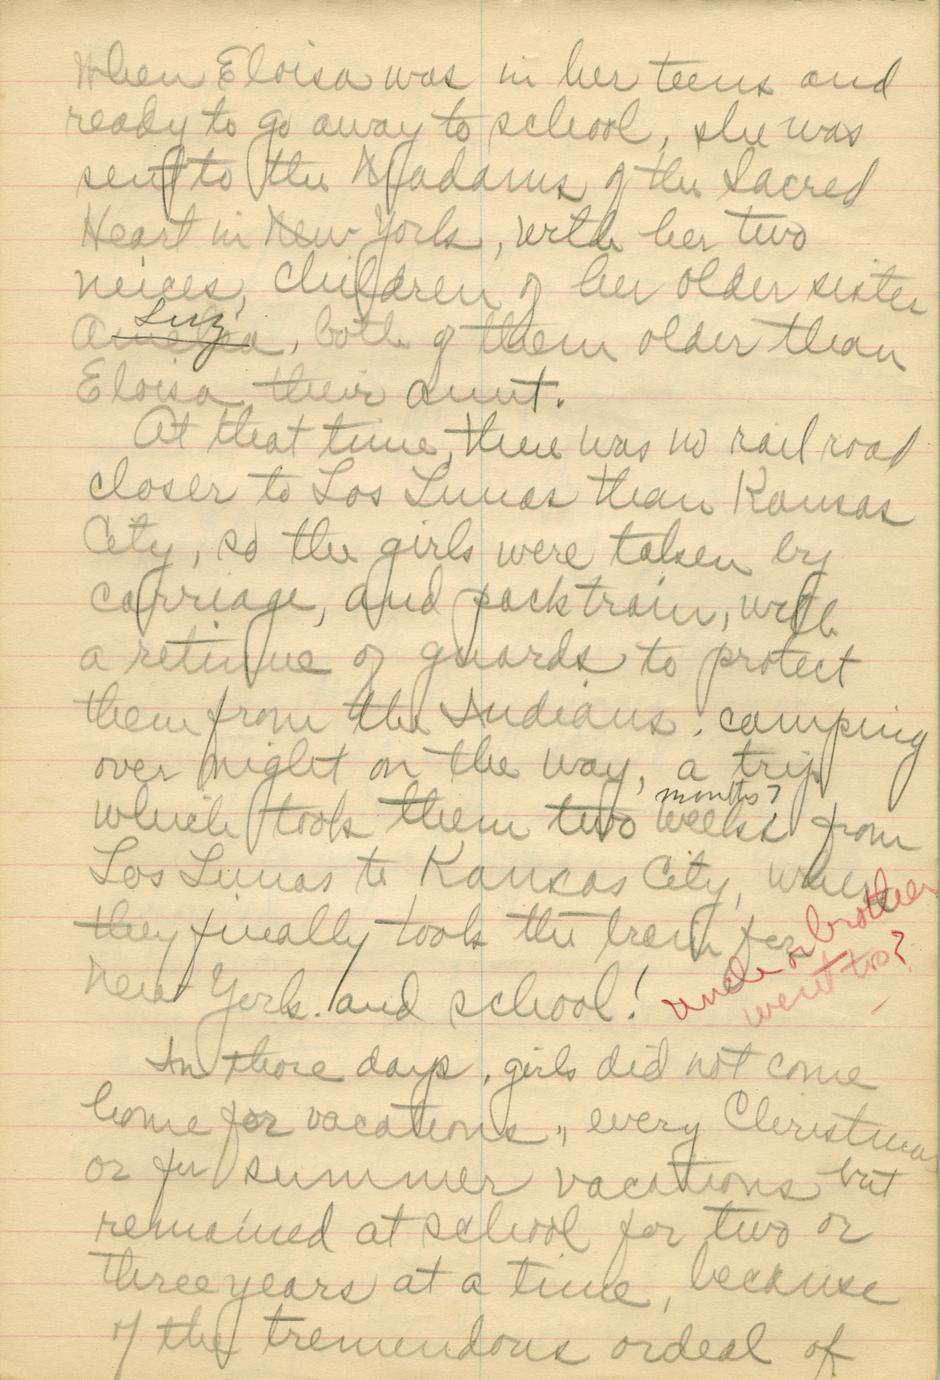 When Eloisa was in her teens and
ready to go away to school, she was
sent to the Madams of the Sacred
Heart in New York, with her two
neices, children of her older sister
Luz,
Amelia, both of them older than
Eloisa, their aunt.
At that time, there was no rail road
closer to Los Lunas than Kansas
City, so the girls were taken by
carriage, and pack train, with
a retinue of guards to protect
them from the Indians, camping
over night on the way, a trip
months?
which took them two weeks from
Los Lunas to Kansas City, where
they finally took the train for
New York. and school!
uncle or brother
went too?
In those days, girls did not come
home for vacations,, every Christmas
or for summer vacations but
remained at school for two or
three years at a time, because
of the tremendous ordeal of